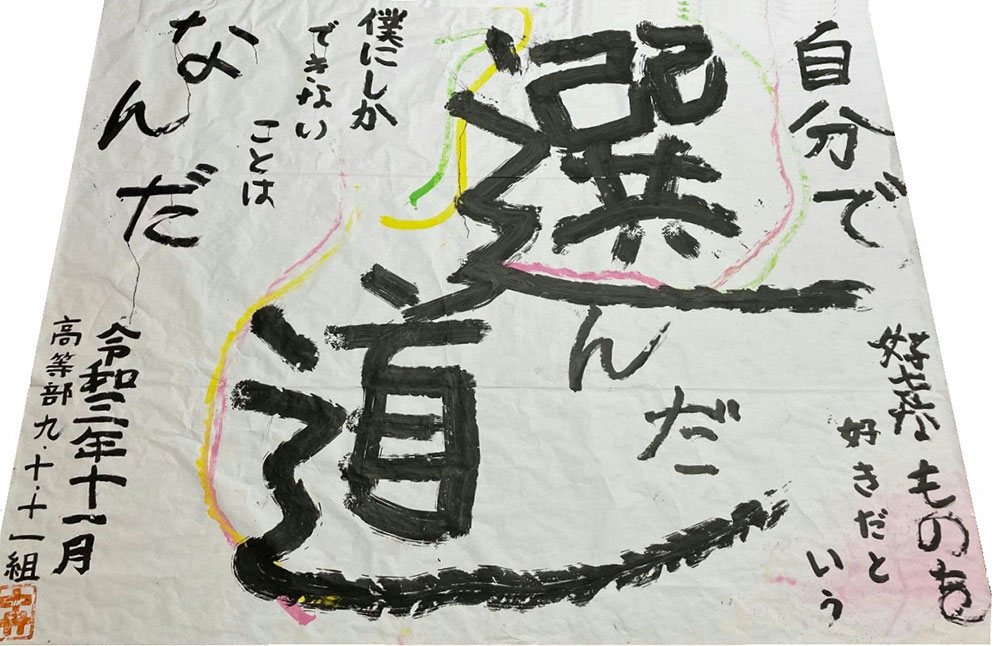 自分で
選んだ
道
好きなものを
好きだと
いう
僕にしか
できない
ことは
なんだ
令和三年十一月
高等部九・十・十一組